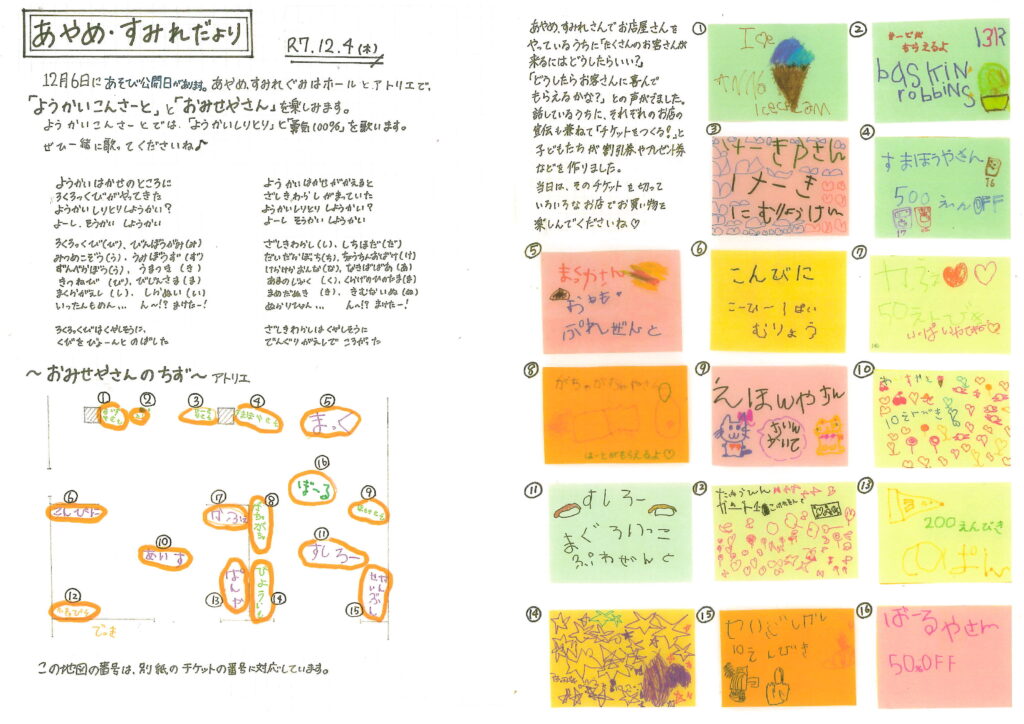 あやめ・すみれだより
R7.12.4(木)
12月6日にあそび公開日があります。あやめ、すみれぐみはホールとアトリエで、
「ようかいこんさーと」と「おみせやさん」を楽しみます。
ようかいこんさーとでは、「ようかいしりとり」と「勇気100%」を歌います。
ぜひ一緒に歌ってくださいね♪
ようかいはかせのところに
ろくろっくびがやってきた
ようかいしりとりしようかい?
よーし、そうかい しようかい
ろくろっくび(び)、びんぼうがみ(み)
みつめこぞう(う)、うみぼうず(ず)
ずんべらぼう(う)、うまつき(き)
きつねび(び)、びじんさま(ま)
まくらがえし(し)、しらぬい(い)
いったんもめん... ん〜!? まけたー!
ろくろっくびはくやしそうに、
くびをびよーんとのばした
ようかいはかせがかえると
ざしきわらしがまっていた
ようかいしりとりしようかい?
よーしそうかいしようかい
ざしきわらし(し)、しちほだ(だ)
だいだらぼっち(ち)、ちょうちんおばけ(け)
けらけらおんな(な)、なきばばあ(あ)
あまのじゃく(く)、くらげのひのたま(ま)
まめだぬき(き)、きむないぬ(ぬ)
ぬかりひょん... ん〜!? まけたー!
ざしきわらしはくやしそうに
でんぐりがえしでころがった
〜おみせやさんのちず〜 アトリエ
① ② ③ ④ ⑤
まっく
⑯
ばーる
⑥ ⑦ ⑧ ⑨
こんびに
かふぇ
がちゃがちゃ
⑩
あいす
⑪
すしろー
⑫ ⑬ ⑭ ⑮
ぱんや
びよういん
この地図の番号は、別紙のチケットの番号に対応しています。
あやめ、すみれさんでお店屋さんを
やっているうちに「たくさんのお客さんが
来るにはどうしたらいい?」
「どうしたらお客さんに喜んで
もらえるかな?」との声がでました。
話しているうちに、それぞれのお店の
宣伝も兼ねて「チケットをつくる!」と
子どもたちが割引券やプレゼント券
などを作りました。
当日は、そのチケットを切って
いろいろなお店でお買い物を
楽しんでくださいね♡
①
I
Icecream
②
もらえるよ
31
baskin
robbins
③
けーきやさん
けーき
にむりょうけん
④
すまほうやさん
500えんOFF
⑤
まくやさん
おもちゃ
ぷれぜんと
⑥
こんびに
こーひー1ぱい
むりょう
⑦
かふぇ
50えんびき
⑧
がちゃがちゃやさん
はーとがもらえるよ♡
⑨
えほんやさん
⑩
10えんびき
⑪
すしろー
まぐろいっこ
ぷれぜんと
⑫
⑬
200えんびき
ぱん
⑭
⑮
10えんびき
⑯
ばーるやさん
50%OFF